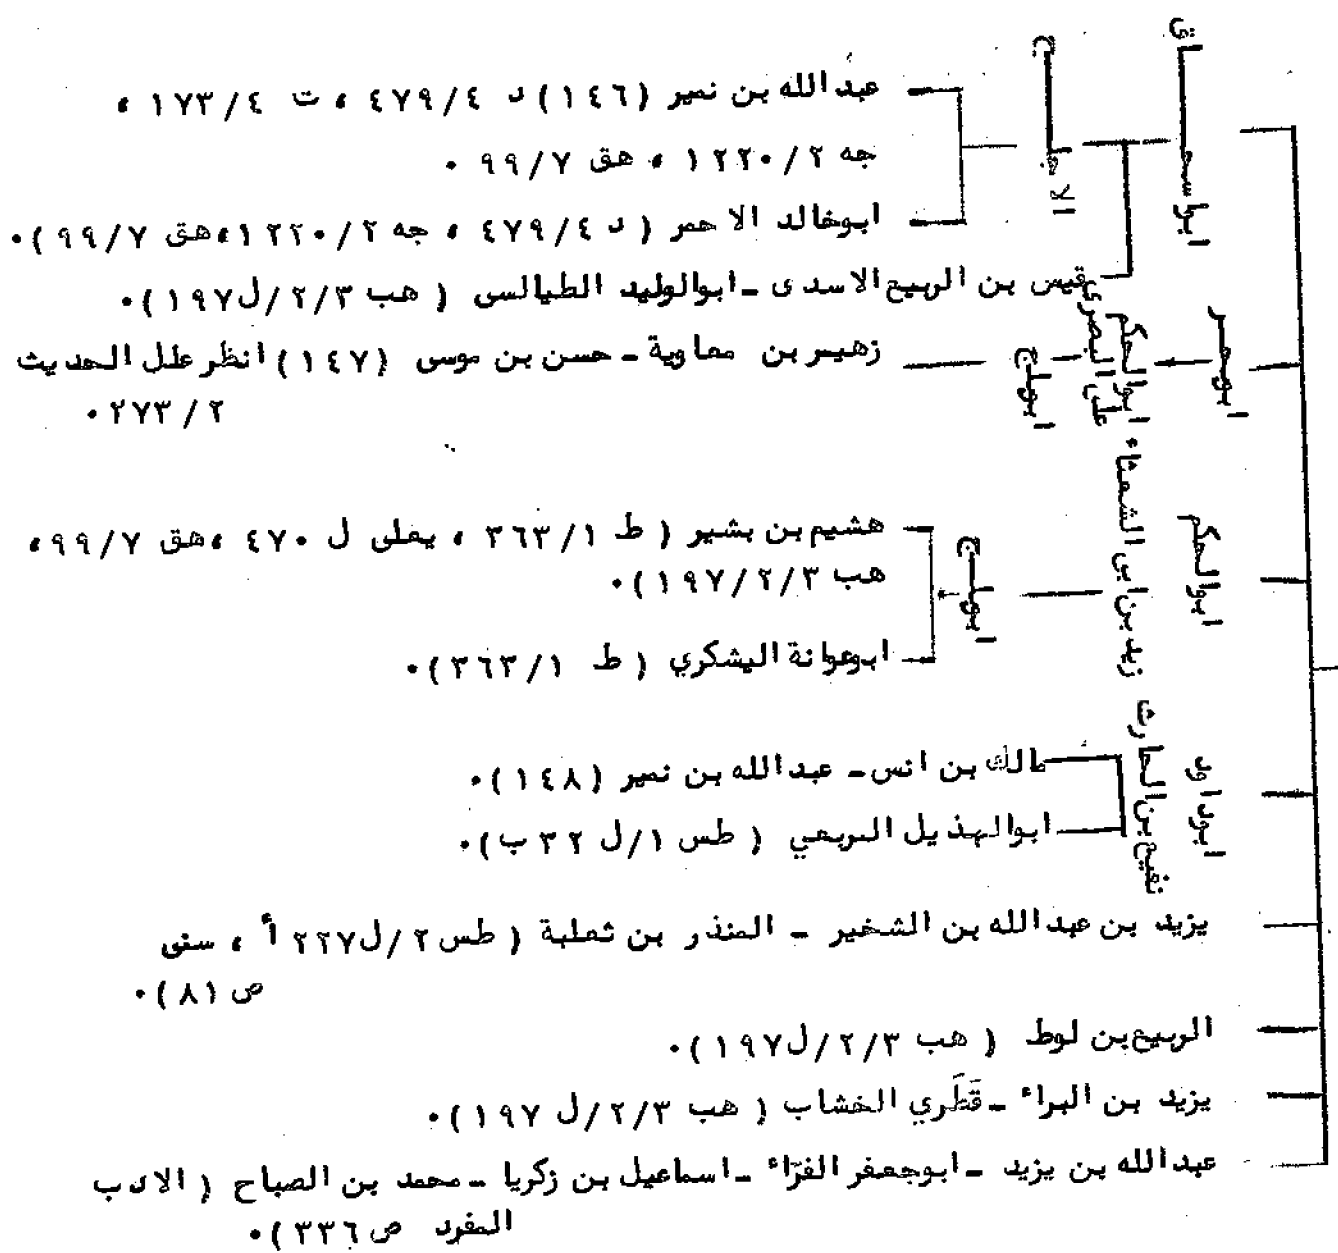 ابواسحاق
الاجلح
عبدالله بن نمير (١٤٦) د ٤٧٩/٤ ، ت ١٧٣/٤ ،
جه ١٢٢٠/٢ ، هق ٩٩/٧ .
ابوخالد الاحمر ( د ٤٧٩/٤ ، جه ١٢٢٠/٢ ،هق ٩٩/٧).
قيس بن الربيع الاسدى ـ ابوالوليد الطيالسى ( هب ٢/٣/ل١٩٧).
ابوبحر
ابوالحكم
على البصرى
ابوبلج
زهير بن معاوية ـ حسن بن موسى (١٤٧) انظر علل الحديث
٢٧٣/٢ .
ابوالحكم
زيد بن ابى الشعثاء
ابوبلج
هشيم بن بشير ( ط ٣٦٣/١ ، يعلى ل ٤٧٠ ،هق ٩٩/٧ ،
هب ١٩٧/٢/٣).
ابوعوانة اليشكري ( ط ٣٦٣/١).
ابوداود
نفيع بن الحارث
مالك بن انس ـ عبدالله بن نمير (١٤٨).
ابوالهذيل الربعي ( طس ١/ل ٣٢ ب).
يزيد بن عبدالله بن الشخير ـ المنذر بن ثعلبة ( طس ٢/ل٢٢٧ أ ، سنى
ص (٨١).
الربيع بن لوط ( هب ٢/٣/ل١٩٧).
يزيد بن البراء ـ قَطَري الخشاب ( هب ٢/٣/ل ١٩٧).
عبدالله بن يزيد ـ ابوجعفر الفرّاء ـ اسماعيل بن زكريا ـ محمد بن الصباح ( الادب
المفرد ص ٣٣٦).